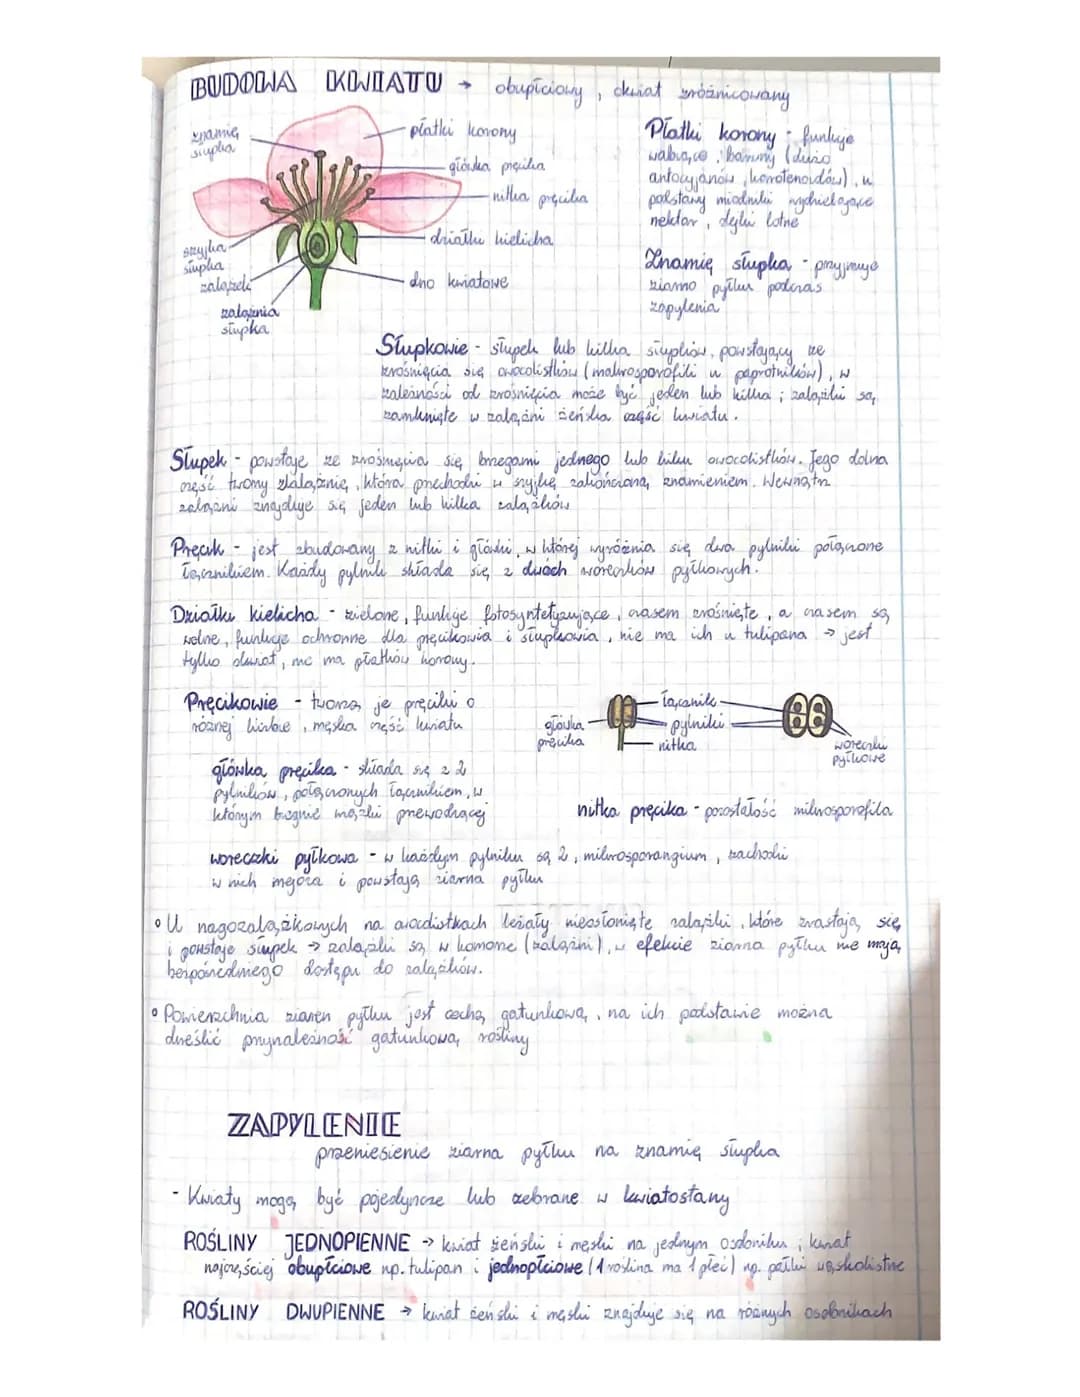 BUDOWA KWIATU → obupłciowy, okwiat zróżnicowany
znamię
słupka
płatki korony
główka pręcika
nitka pręcika
działki kielicha
dno kwiatowe
szyjka
słupka
zalążek
zalążnia
słupka
Płatki korony - funkcje
wabiące, barwny (dużo
antocyjanów, karotenoidów), u
podstawy miodniki wydzielające
nektar, olejki lotne
Znamię słupka - przyjmuje
ziarno pyłku podczas
zapylenia
Słupkowie - słupek lub kilka słupków, powstający ze
zrośnięcia się owocolistków (makrosporofili u paprotników), w
zależności od zrośnięcia może być jeden lub kilka; zalążki są
zamknięte w zalążni żeńska część kwiatu.
Słupek - powstaje ze zrośnięcia się brzegami jednego lub kilku owocolistków. Jego dolna
część tworzy zalążnię, która przechodzi w szyjkę zakończoną znamieniem. Wewnątrz
zalążni znajduje się jeden lub kilka zalążków
Pręcik - jest zbudowany z nitki i główki, w której wyróżnia się dwa pylniki połączone
łącznikiem. Każdy pylnik składa się z dwóch woreczków pyłkowych.
Działki kielicha - zielone, funkcje fotosyntetyzujące, czasem zrośnięte, a czasem są
wolne, funkcje ochronne dla pręcikowia i słupkowia, nie ma ich u tulipana → jest
tylko okwiat, nie ma płatków korony.
Pręcikowie - tworzą je pręciki o
różnej liczbie, męska część kwiatu
główka
pręcika
łącznik
pylniki
nitka
woreczki
pyłkowe
główka pręcika - składa się z 2
pylników, połączonych łącznikiem, w
którym biegnie wiązki przewodzącej
nitka pręcika - pozostałość mikrosporofila
woreczki pyłkowa - w każdym pylniku są 2, mikrosporangium, zachodzi
w nich mejoza i powstają ziarna pyłku
° U nagozalążkowych na owocolistkach leżały nieosłonięte zalążki, które zrastają się
i powstaje słupek → zalążki są w komorze (zalążni), w efekcie ziarna pyłku nie mają
bezpośredniego dostępu do zalążków.
° Powierzchnia ziaren pyłku jest cechą gatunkową, na ich podstawie można
określić przynależność gatunkową rośliny
ZAPYLENIE
przeniesienie ziarna pyłku na znamię słupka
- Kwiaty mogą być pojedyncze lub zebrane w kwiatostany
ROŚLINY JEDNOPIENNE → kwiat żeński i męski na jednym osobniku; kwiat
najczęściej obupłciowe np. tulipan i jednopłciowe (1 roślina ma 1 płeć) np. pałki wąskolistne
ROŚLINY DWUPIENNE → kwiat żeński i męski znajduje się na różnych osobnikach